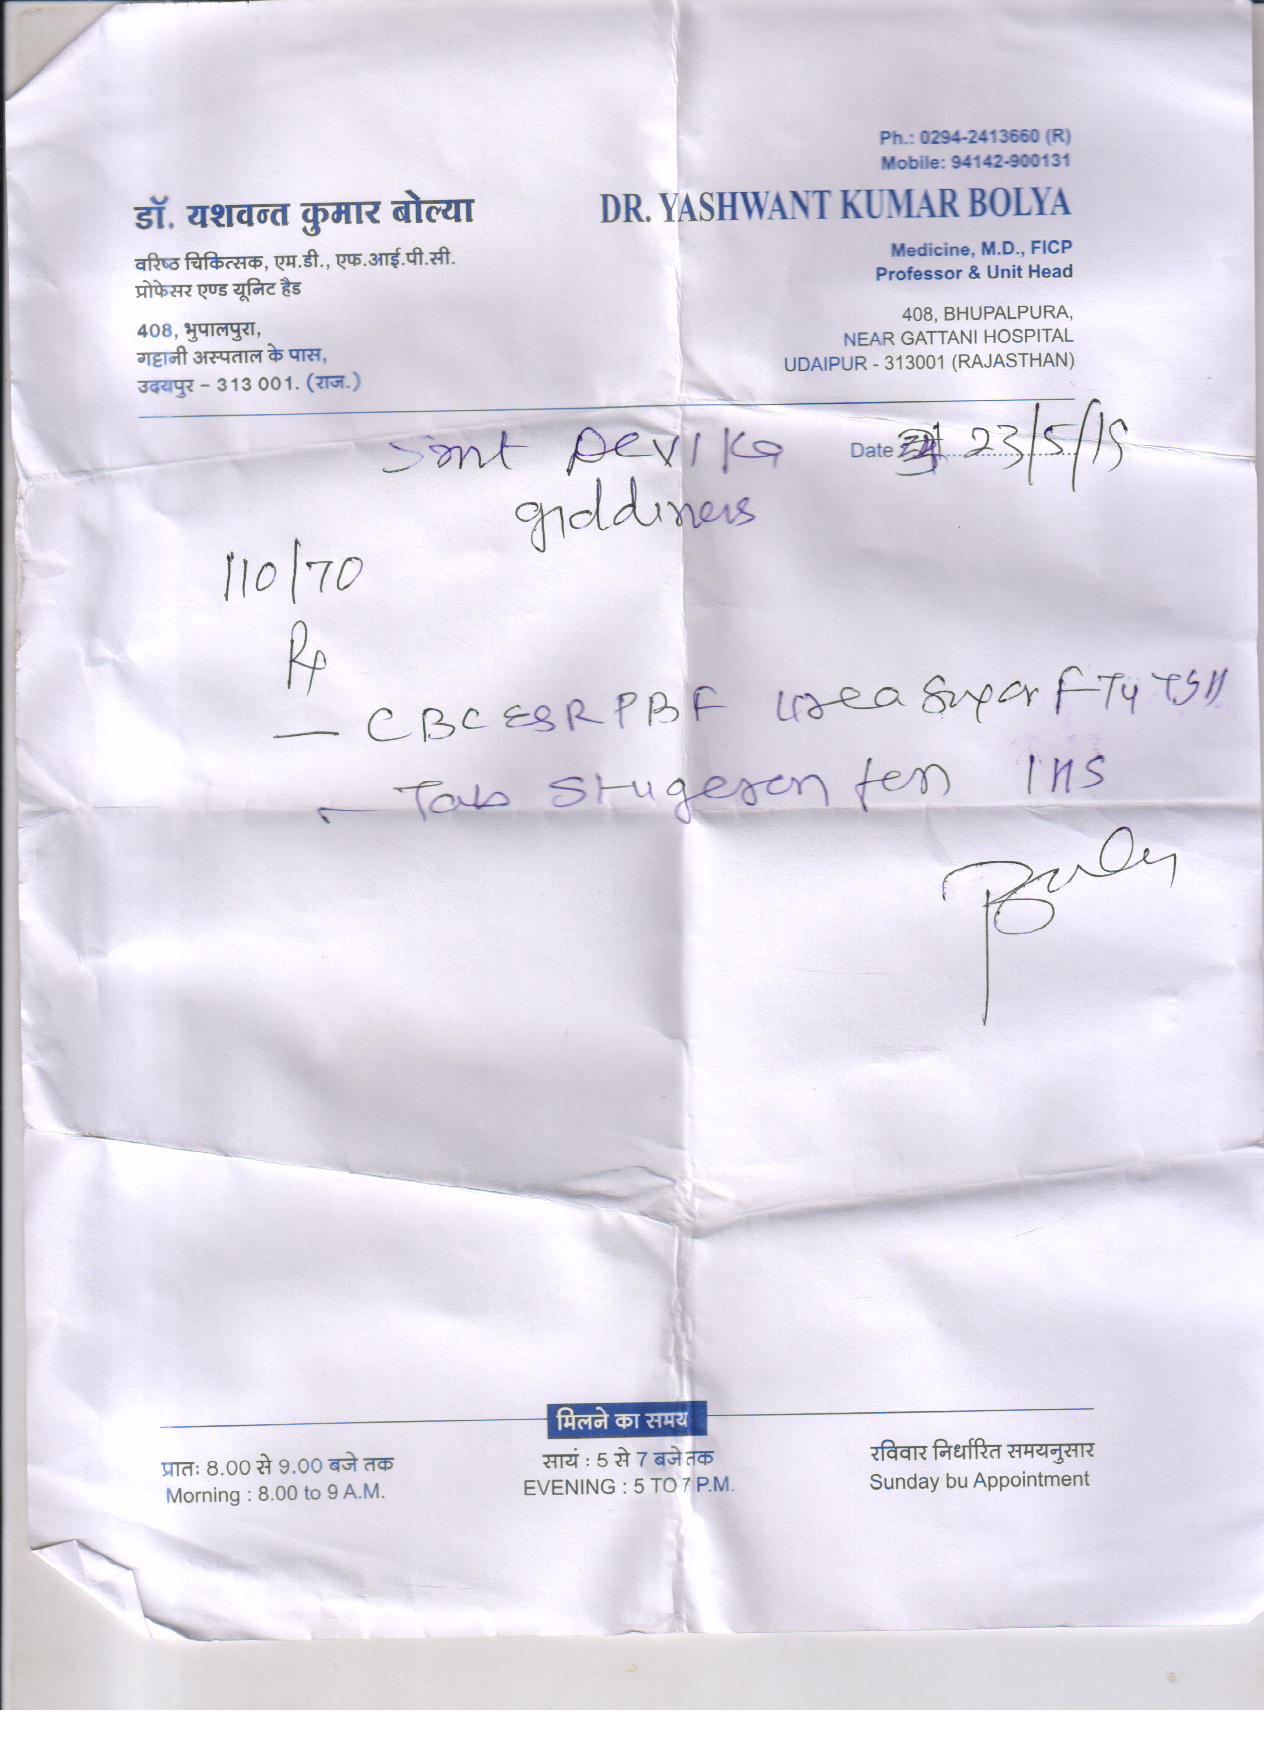 Ph.: 0294-2413660 (R)
Mobile: 94142-900131
डॉ. यशवन्त कुमार बोल्या
DR. YASHWANT KUMAR BOLYA
वरिष्ठ चिकित्सक, एम.डी., एफ.आई.पी.सी.
प्रोफेसर एण्ड यूनिट हैड
Medicine, M.D., FICP
Professor & Unit Head
408, भुपालपुरा,
गट्टानी अस्पताल के पास,
उदयपुर - 313 001. (राज.)
408, BHUPALPURA,
NEAR GATTANI HOSPITAL
UDAIPUR - 313001 (RAJASTHAN)
Smt Devika
Date 23/5/15
giddiness
110/70
Rp
— CBC ESR PBF Urea Sugar T4 TSH
— Tab Stugeron ten 1 HS
मिलने का समय
प्रातः 8.00 से 9.00 बजे तक
Morning : 8.00 to 9 A.M.
सायं : 5 से 7 बजे तक
EVENING : 5 TO 7 P.M.
रविवार निर्धारित समयनुसार
Sunday bu Appointment